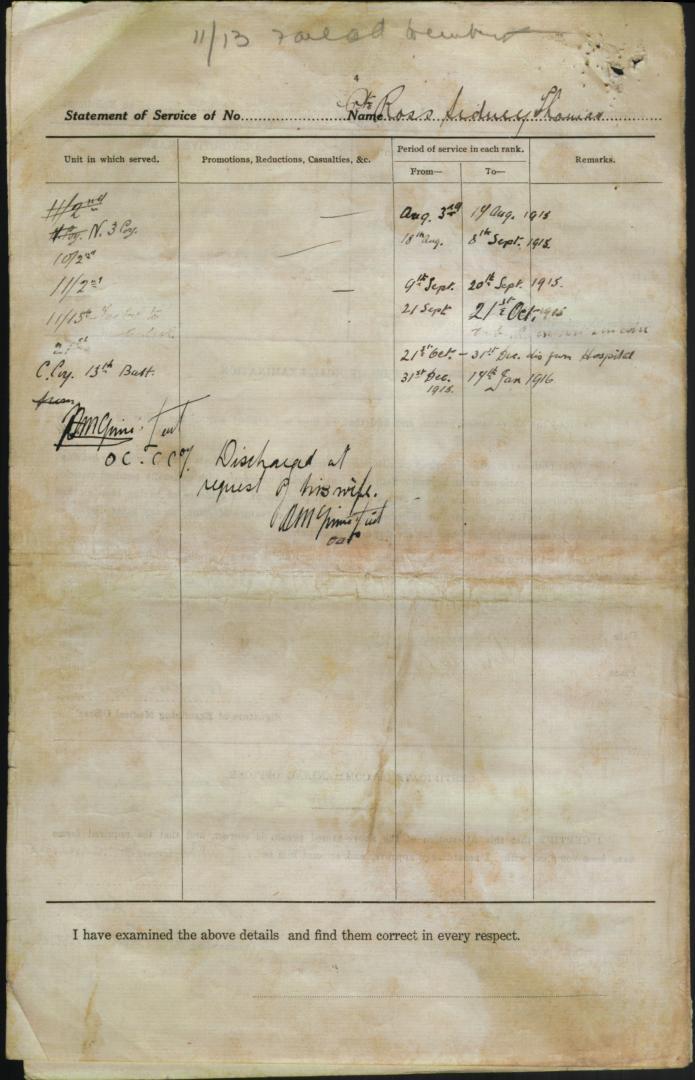 11/13
Statement of Service of No. Pte Name Ross Sidney Thomas
Unit in which served. Promotions, Reductions, Casualties, &c. Period of service in each rank. Remarks.
From— To—
11/2nd — Aug. 3rd 17 Aug. 1915
N. 3 Coy. — 18th Aug. 8th Sept. 1915.
10/2nd
11/2nd — 9th Sept. 20th Sept. 1915.
11/15th 21 Sept 21st Oct. 1915
27th
21st Oct. – 31st Dec. dis from Hospital
C. Coy. 13th Batt. 31st Dec. 1915. 17th Jan 1916
O C. C Coy.
Discharged at
request of his wife.
I have examined the above details and find them correct in every respect.